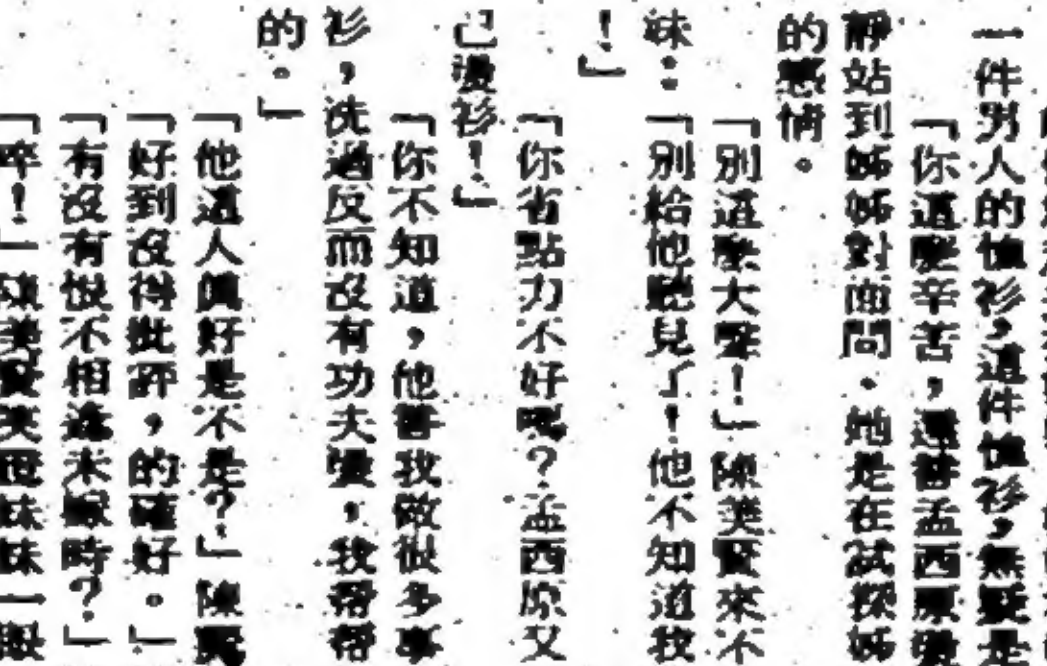 一件男人的恤衫,這件恤衫,無疑是
「你這麼辛苦,還替孟西原燙
靜站到姊姊對面問。她是在試探姊
的感情。
「別這麼大聲!」陳美賢來不
妹:「別給他聽見了!他不知道我
!」
「你省點力不好嗎?孟西原又
己燙衫!」
「你不知道,他替我做很多事
衫,洗過反而沒有功夫燙,我帮帮
的。」
「他這人真好是不是?」陳
「好到沒得批評,的確好。」
「有沒有恨不相逢未嫁時?」
「啐!」陳美賢 妹妹一眼